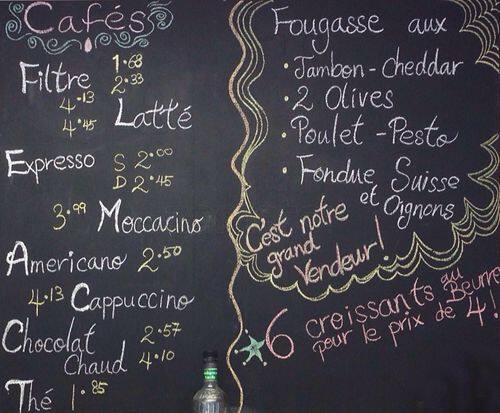 Cafés
Filtre 1.68
2.33
4.13
4.45 Latté
Expresso S 2.00
D 2.45
3.99 Moccacino
Americano 2.50
4.13 Cappuccino
Chocolat 2.57
Chaud 4.10
Thé 1.85
Fougasse aux
· Jambon-Cheddar
· 2 Olives
· Poulet-Pesto
· Fondue Suisse
et Oignons
C'est notre
grand
Vendeur!
6 croissants au Beurre
pour le prix de 4!